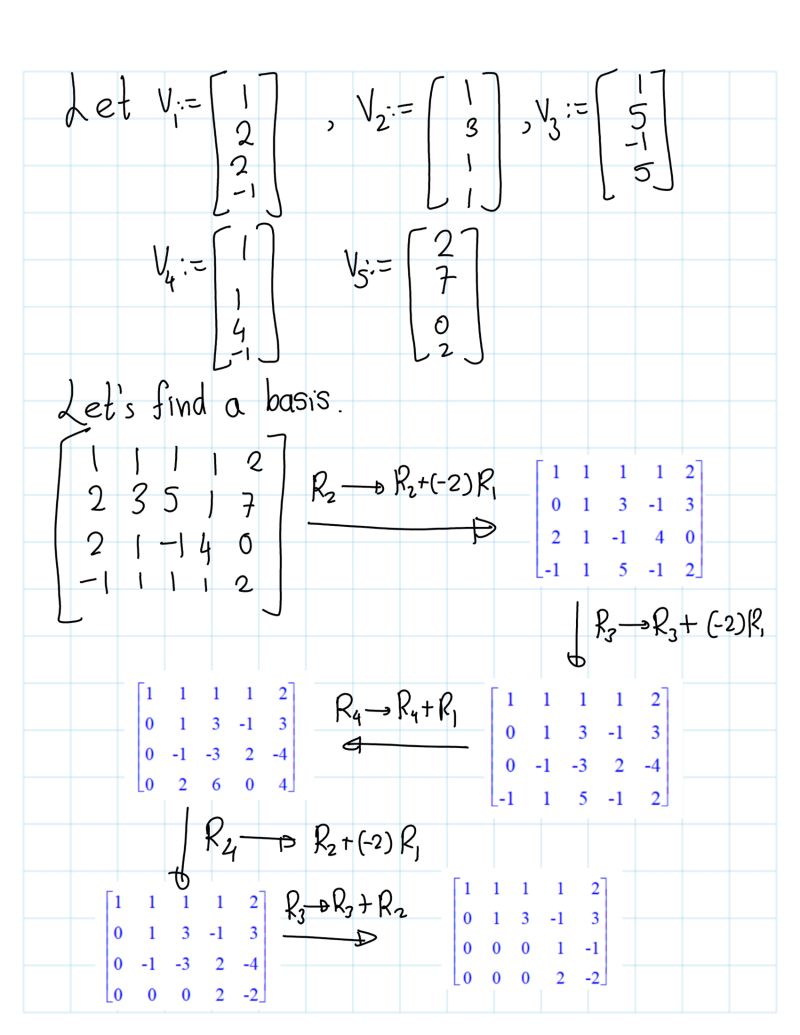 Let V₁:= [1 2 2 -1] , V₂:= [1 3 1 1] , V₃:= [1 5 -1 5]
V₄:= [1 1 4 -1] V₅:= [2 7 0 2]
Let's find a basis.
1 1 1 1 2
2 3 5 1 7
2 1 -1 4 0
-1 1 1 1 2
R₂→R₂+(-2)R₁
1 1 1 1 2
0 1 3 -1 3
2 1 -1 4 0
-1 1 5 -1 2
R₃→R₃+(-2)R₁
1 1 1 1 2
0 1 3 -1 3
0 -1 -3 2 -4
-1 1 5 -1 2
R₄→R₄+R₁
1 1 1 1 2
0 1 3 -1 3
0 -1 -3 2 -4
0 2 6 0 4
R₄→R₂+(-2)R₁
1 1 1 1 2
0 1 3 -1 3
0 -1 -3 2 -4
0 0 0 2 -2
R₃→R₃+R₂
1 1 1 1 2
0 1 3 -1 3
0 0 0 1 -1
0 0 0 2 -2